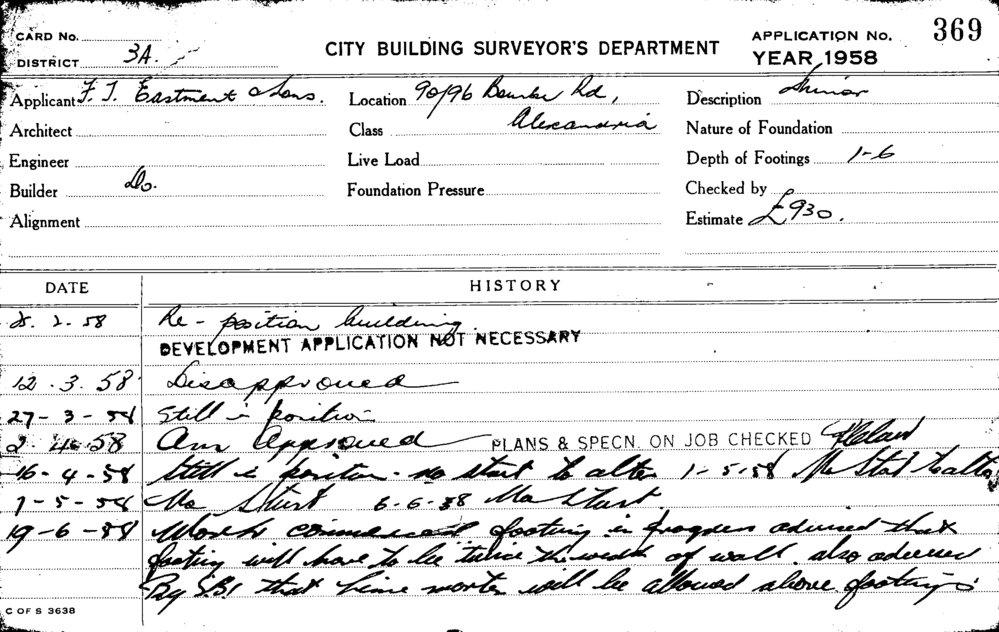 CARD No.
DISTRICT 3A.
CITY BUILDING SURVEYOR'S DEPARTMENT
APPLICATION No. 369
YEAR 1958
Applicant F. J. Eastment & Sons.
Location 90/96 Rd,
Description Minor
Architect
Class Alexandria
Nature of Foundation
Engineer
Live Load
Depth of Footings 1-6
Builder Do.
Foundation Pressure
Checked by
Alignment
Estimate £930.
DATE HISTORY
2. 58 Re-position building
DEVELOPMENT APPLICATION NOT NECESSARY
12. 3. 58 Disapproved
27-3-58 Still in position
2. 4. 58 Approved PLANS & SPECN. ON JOB CHECKED
16-4-58 Still in position - no start to alter 1-5-58 No Start to alter
7-5-58 No Start 6-6-58 No Start
19-6-58 Work commenced footing in progress advised that
footing will have to be twice the width of wall also advised
By that lime morter will be allowed above footings
C OF S 3638